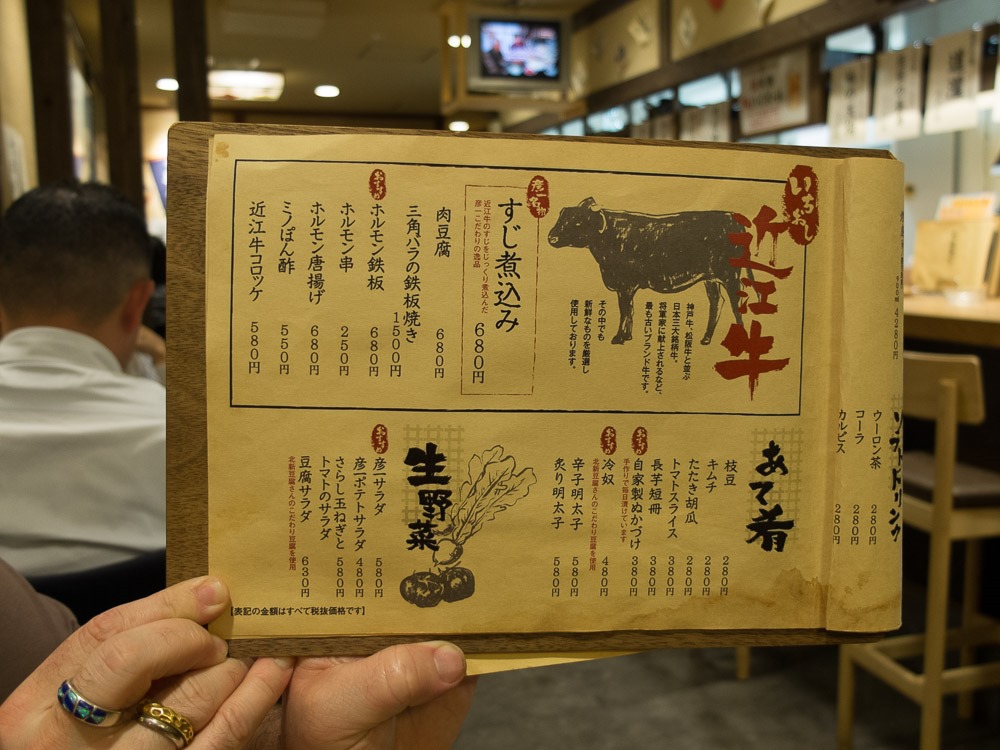 いちおし
近江牛
神戸牛、松阪牛と並ぶ
日本三大銘柄牛。
将軍家に献上されるなど、
最も古いブランド牛です。
その中でも
新鮮なものを厳選し
使用しております。
彦一名物
すじ煮込み 680円
近江牛のすじをじっくり煮込んだ
彦一こだわりの逸品
肉豆腐 680円
三角バラの鉄板焼き 1500円
おすすめ
ホルモン鉄板 680円
ホルモン串 250円
ホルモン唐揚げ 680円
ミノぽん酢 550円
近江牛コロッケ 580円
あて肴
枝豆 280円
キムチ 280円
たたき胡瓜 280円
トマトスライス 380円
長芋短冊 380円
おすすめ
自家製ぬかづけ 380円
手作りで毎日漬けています
おすすめ
冷奴 480円
北新豆腐さんのこだわり豆腐を使用
辛子明太子 580円
炙り明太子 580円
生野菜
おすすめ
彦一サラダ 580円
彦一ポテトサラダ 480円
さらし玉ねぎと
トマトのサラダ 580円
豆腐サラダ 630円
北新豆腐さんのこだわり豆腐を使用
【表記の金額はすべて税抜価格です】
4280円
ソフトドリンク
ウーロン茶 280円
コーラ 280円
カルピス 280円